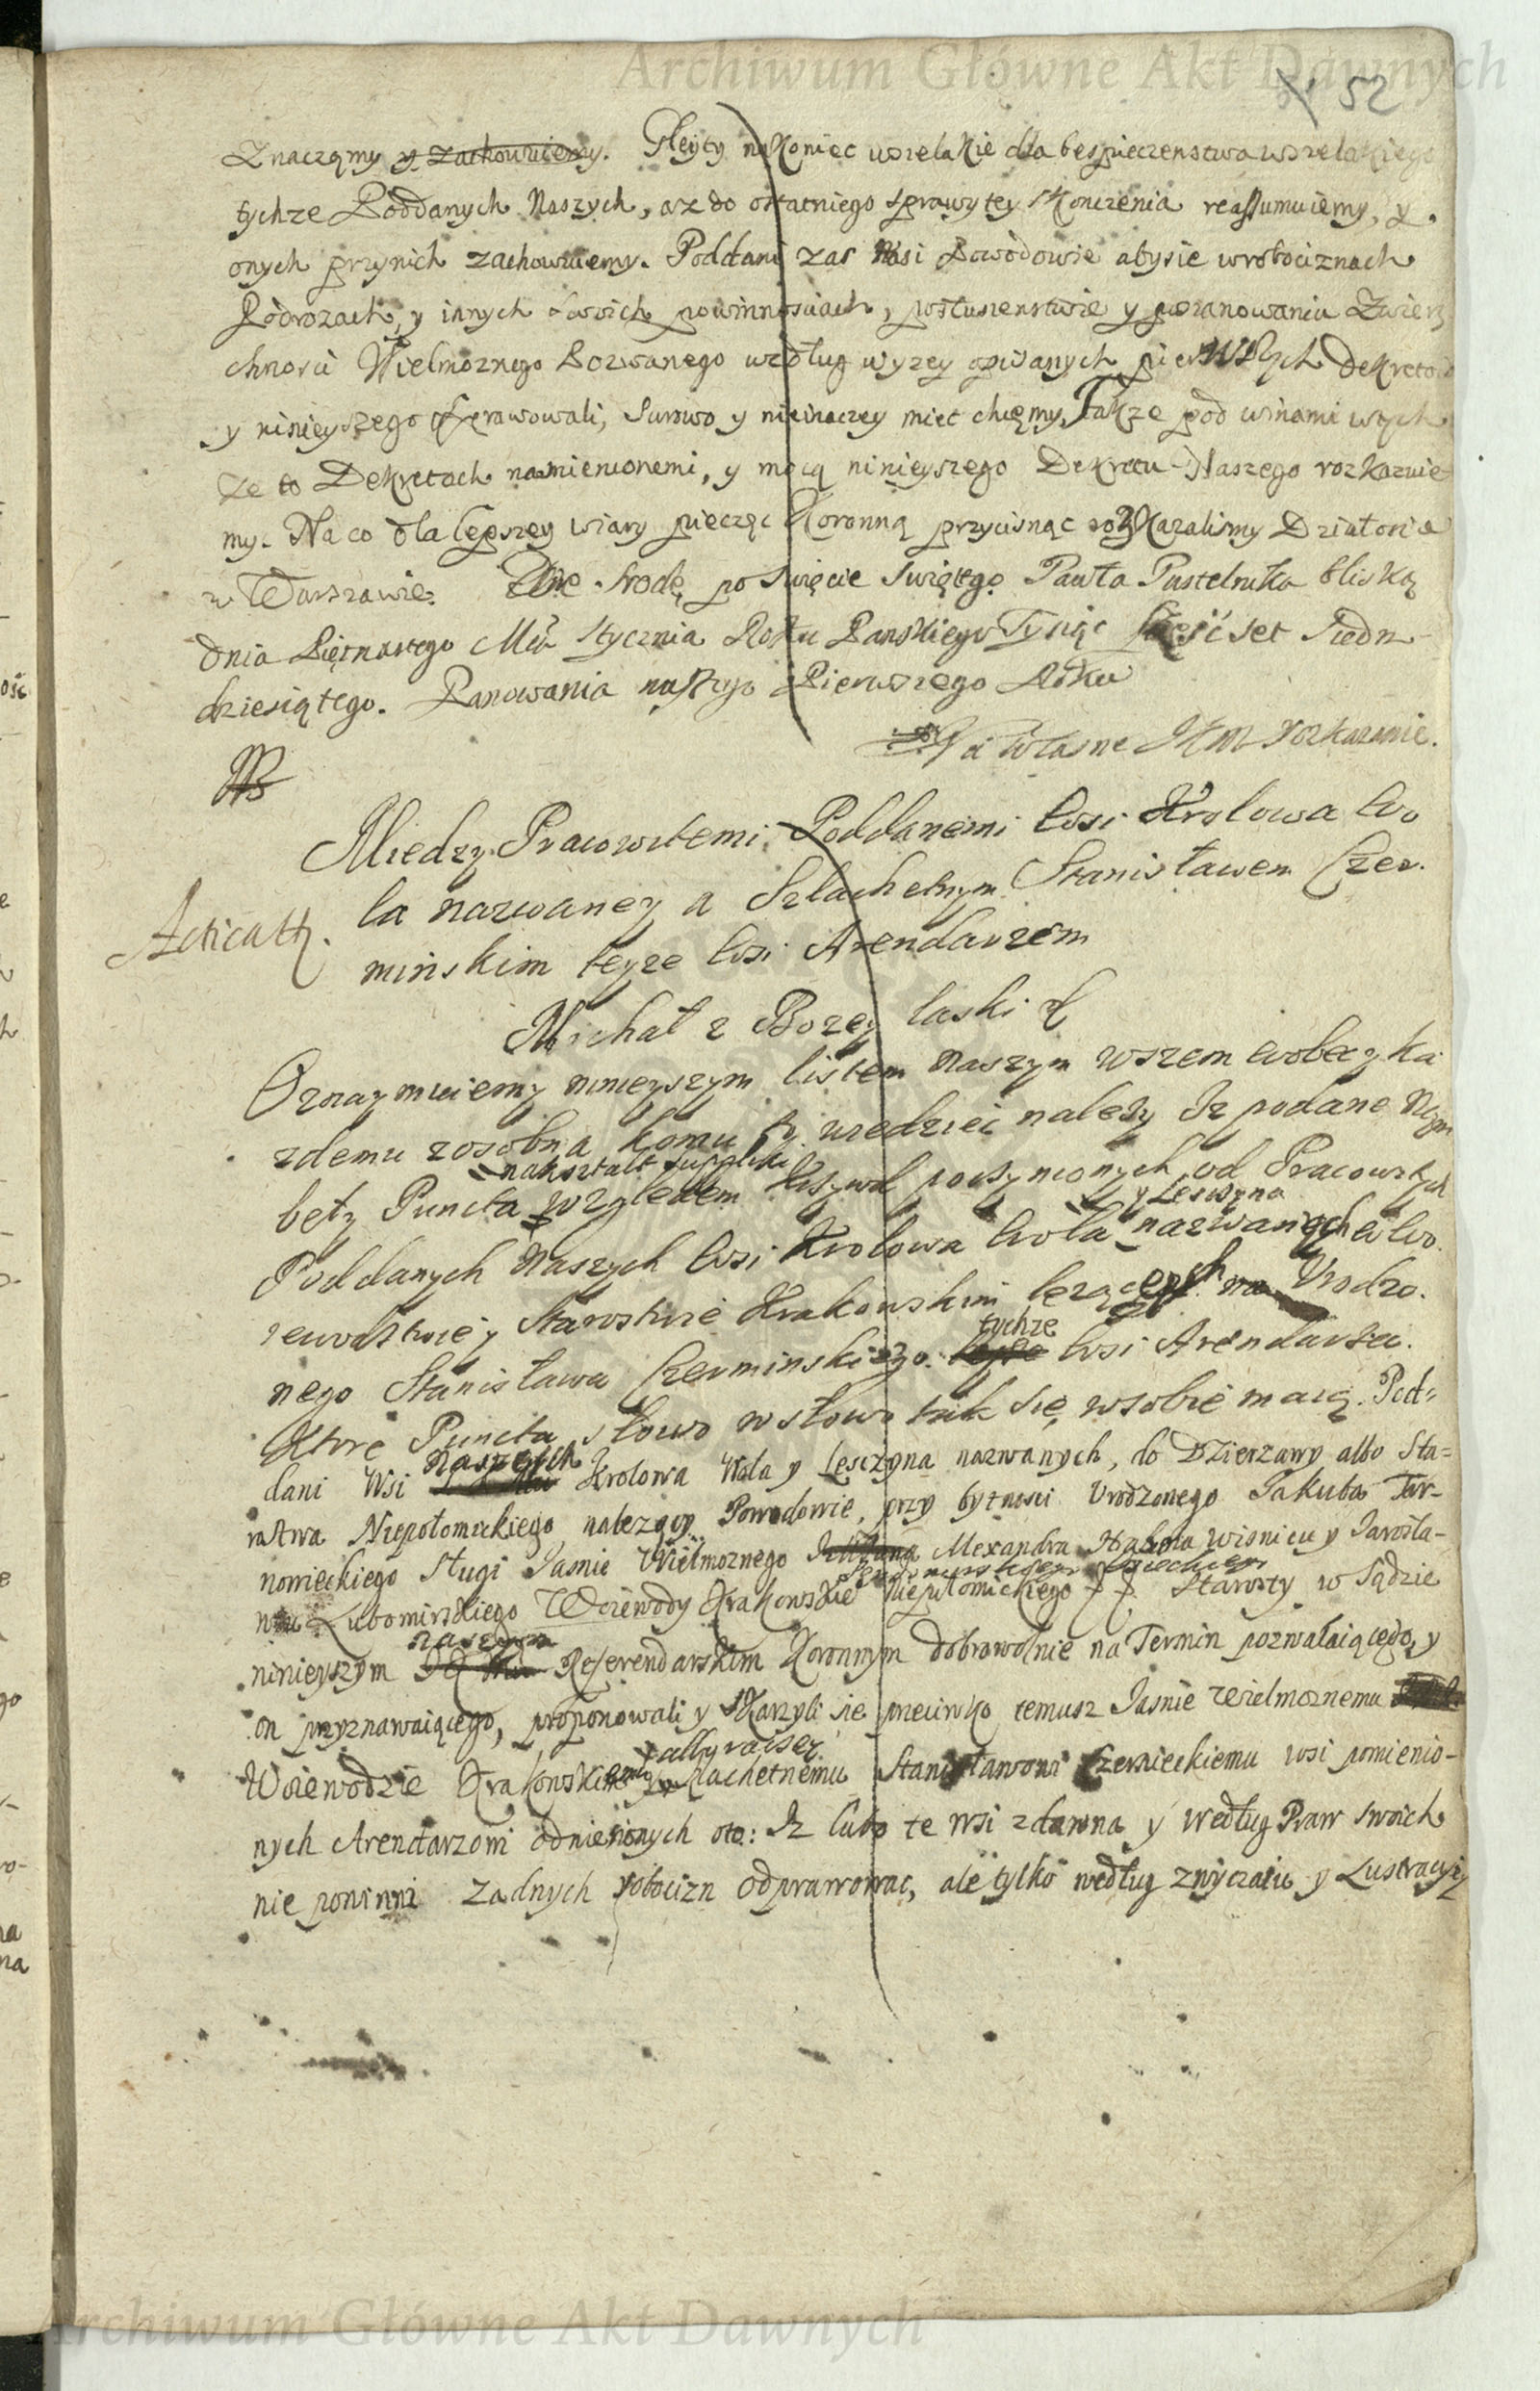 Archiwum Główne Akt Dawnych
52
Znaczemy y zachowuiemy. Gleyty nakoniec wszelakie dla bespieczenstwa wszelakiego
tychze Poddanych Naszych, az do ostatniego sprawy tey skonczenia reassumuiemy, y
onych przy nich zachowuiemy. Poddani zas Nasi Powodowie aby sie w robociznach
Podrozach, y innych swoich powinnosciach, posłuszenstwie y poszanowaniu Zwierz
chnosci Wielmoznego Pozwanego według wyzey opisanych pierwszych Dekretow
y ninieyszego sprawowali, surowo y nieinaczey miec chcemy, Takze pod winami w tych
ze to Dekretach namienionemi, y mocą ninieyszego Dekretu Naszego rozkazuie
my. Na co dla lepszey wiary pieczęc Koronną przycisnąc rozkazalismy Działo sie
w Warszawie. We Srodę po Swięcie Swiętego Pawła Pustelnika bliską
dnia Piętnastego Mca Stycznia Roku Panskiego Tysiąc Szesć set Siedm
dziesiątego. Panowania naszego Pierwszego Roku
Na własne JKM rozkazanie.
Miedzy Pracowitemi Poddanemi wsi Krolowa Wo
la nazwaney a Szlachetnym Stanisławem Czer
mińskim teyze wsi Arendarzem
Acticatt.
Michał z Bozey łaski
Oznaymuiemy ninieyszym listem naszym wszem wobec y ka
zdemu zosobna komu to wiedziec nalezy Iz podane Nam
były Puncta względem krzywd poczynionych od Pracowitych
nakształt supliki
Poddanych Naszych wsi Krolowa Wola nazwanych w Wo
y Lesczyna
iewodstwie y Starostwie Krakowskim lezących Vrodzo
nego Stanisława Czerminskiego wsi Arendarza.
tychze
Ktore Puncta słowo w słowo tak się w sobie maią. Pod-
dani Wsi Krolowa Wola y Lesczyna nazwanych, do Dzierzawy albo Sta-
naszych
rostwa Niepołomickiego nalezący Powodowie, przy bytnosci Vrodzonego Jakuba Tar-
nowieckiego Sługi Jasnie Wielmoznego Alexandra Hrabia Wisniczu y Jarosła-
wiu Lubomirskiego Woiewody Krakowskie Niepołomickiego Starosty w Sądzie
ninieyszym Referendarskim Koronnym dobrowolnie na Termin pozwalaiącego, y
naszym
on przyznawaiącego, proponowali y skarzyli sie przeciwko temusz Jasnie Wielmoznemu
Woiewodzie Krakowskiemu Szlachetnemu Stanisławowi Czernieckiemu wsi pomienio-
nych Arendarzowi odniesionych oto: Iz lubo te wsi zdawna y według Praw swoich
nie powinni zadnych robocizn odprawowac, ale tylko według zwyczaiu y Lustracyiy
Archiwum Główne Akt Dawnych